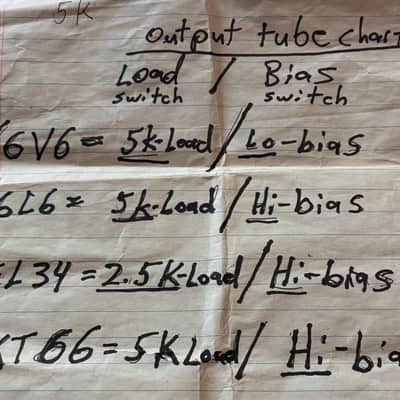 5K
Output tube chart
Load / Bias
switch switch
6V6 = 5k-Load / Lo-bias
6L6 = 5k-Load / Hi-bias
EL34 = 2.5K-Load / Hi-bias
KT66 = 5K Load / Hi-bia